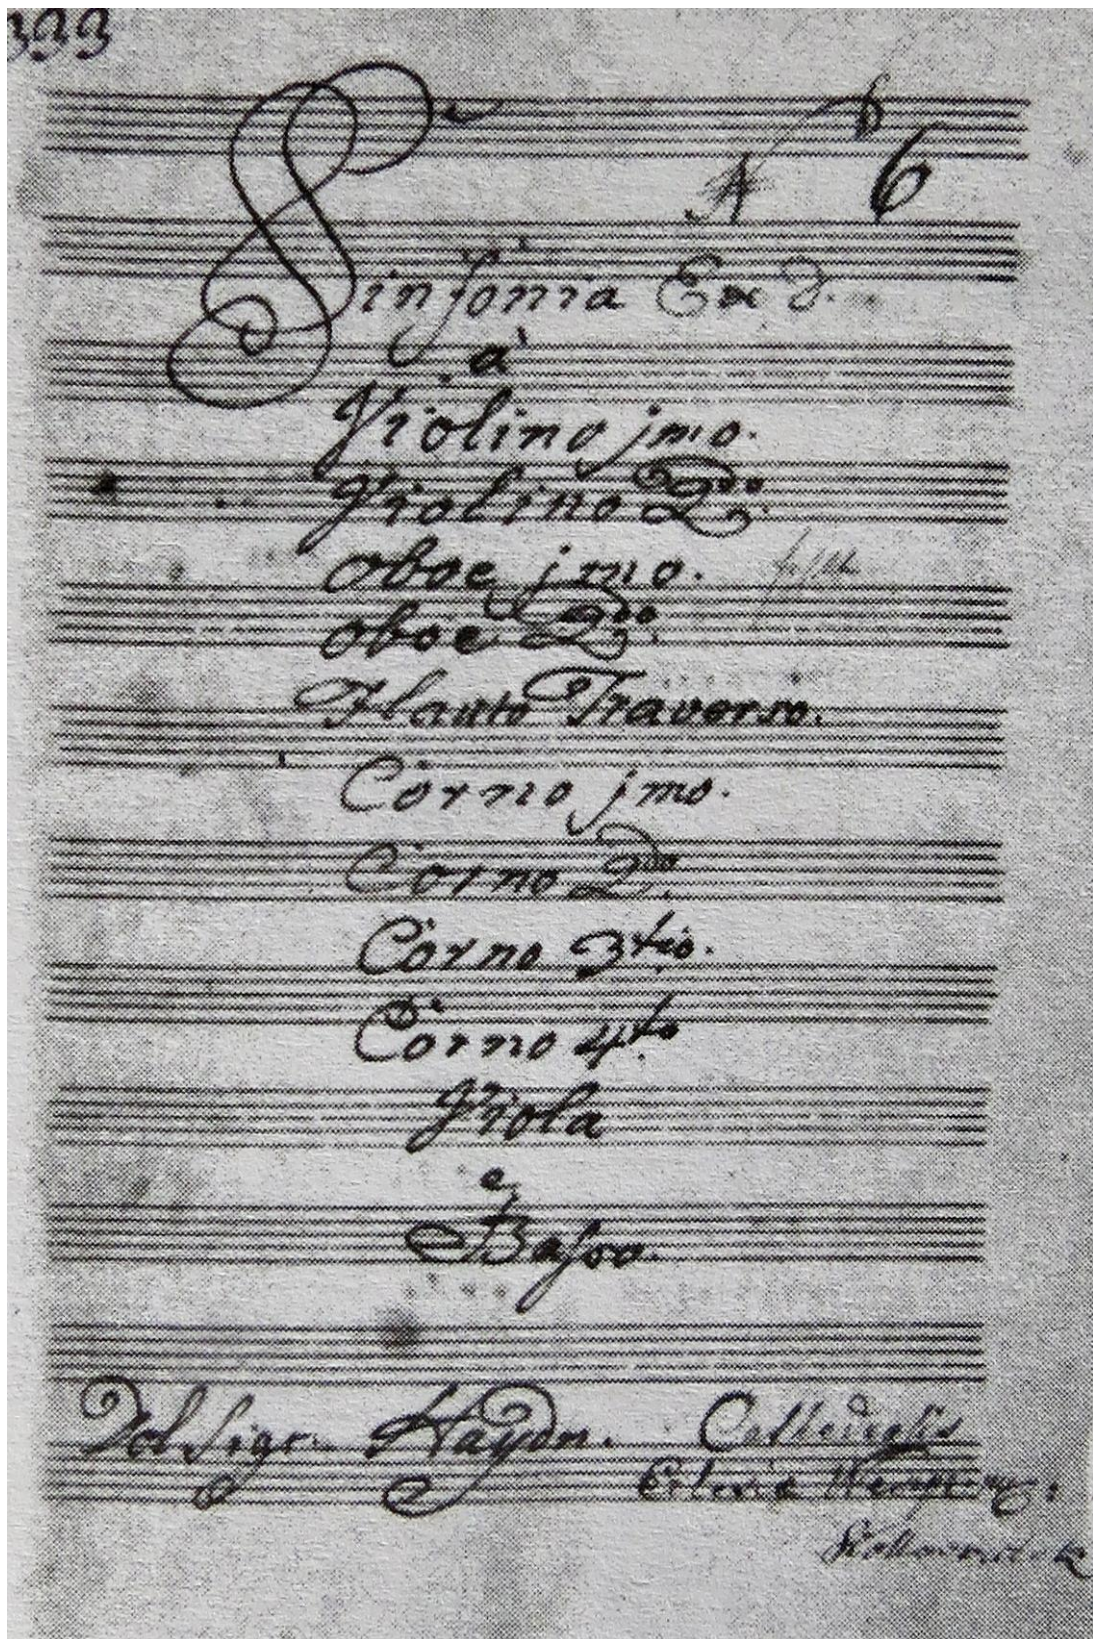 6
Sinfonia Ex d.
à
Violino jmo.
Violino 2do.
oboe jmo.
oboe 2do.
Flauto Traverso.
Corno jmo.
Corno 2do.
Corno 3tio.
Corno 4to.
Viola
e
Basso.
Del Sigr. Haydn.